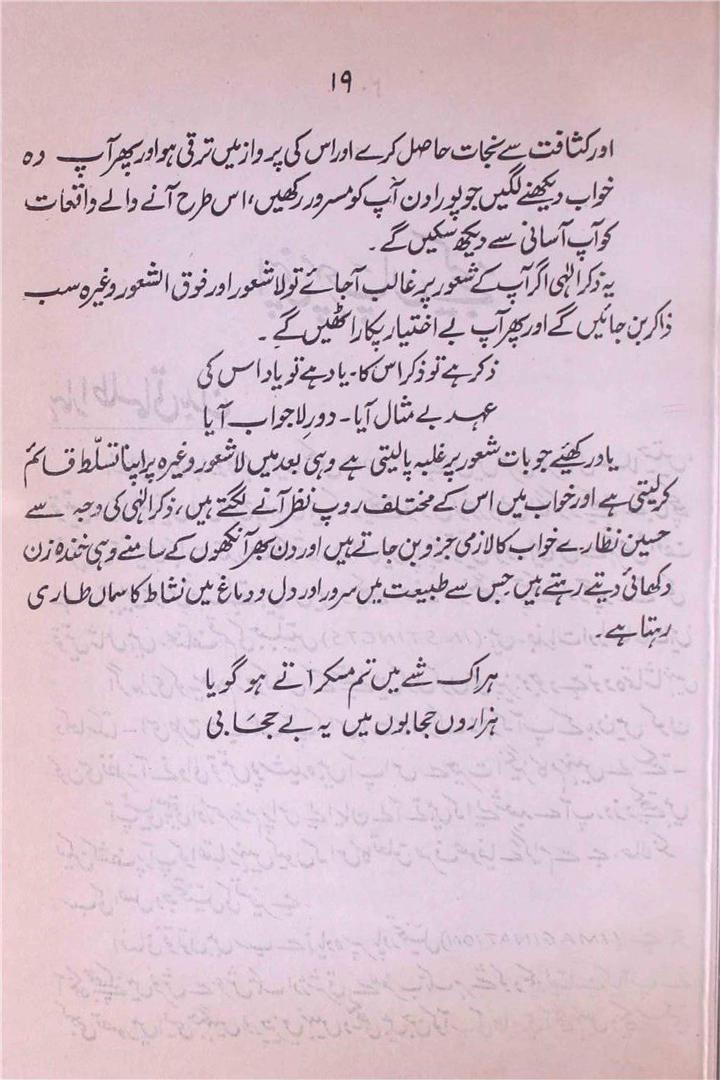 ۱۹
اور کثافت سے نجات حاصل کرے اور اس کی پرواز میں ترقی ہو اور پھر آپ وہ
خواب دیکھنے لگیں جو پورا دن آپ کو مسرور رکھیں، اس طرح آنے والے واقعات
کو آپ آسانی سے دیکھ سکیں گے۔
یہ ذکر الٰہی اگر آپ کے شعور پر غالب آجائے تو لاشعور اور فوق الشعور وغیرہ سب
ذاکر بن جائیں گے اور پھر آپ بے اختیار پکار اٹھیں گے۔
ذکر ہے تو ذکر اس کا۔ یاد ہے تو یاد اس کی
عہد بے مثال آیا۔ دورِ لاجواب آیا
یاد رکھیئے جو بات شعور پر غلبہ پالیتی ہے وہی بعد میں لاشعور وغیرہ پر اپنا تسلّط قائم
کرلیتی ہے اور خواب میں اس کے مختلف روپ نظر آنے لگتے ہیں، ذکر الٰہی کی وجہ سے
حسین نظارے خواب کا لازمی جزو بن جاتے ہیں اور دن بھر آنکھوں کے سامنے وہی خندہ زن
دکھائی دیتے رہتے ہیں جس سے طبیعت میں سرور اور دل و دماغ میں نشاط کا سماں طاری
رہتا ہے۔
ہر اک شے میں تم مسکراتے ہو گویا
ہزاروں حجابوں میں یہ بے حجابی